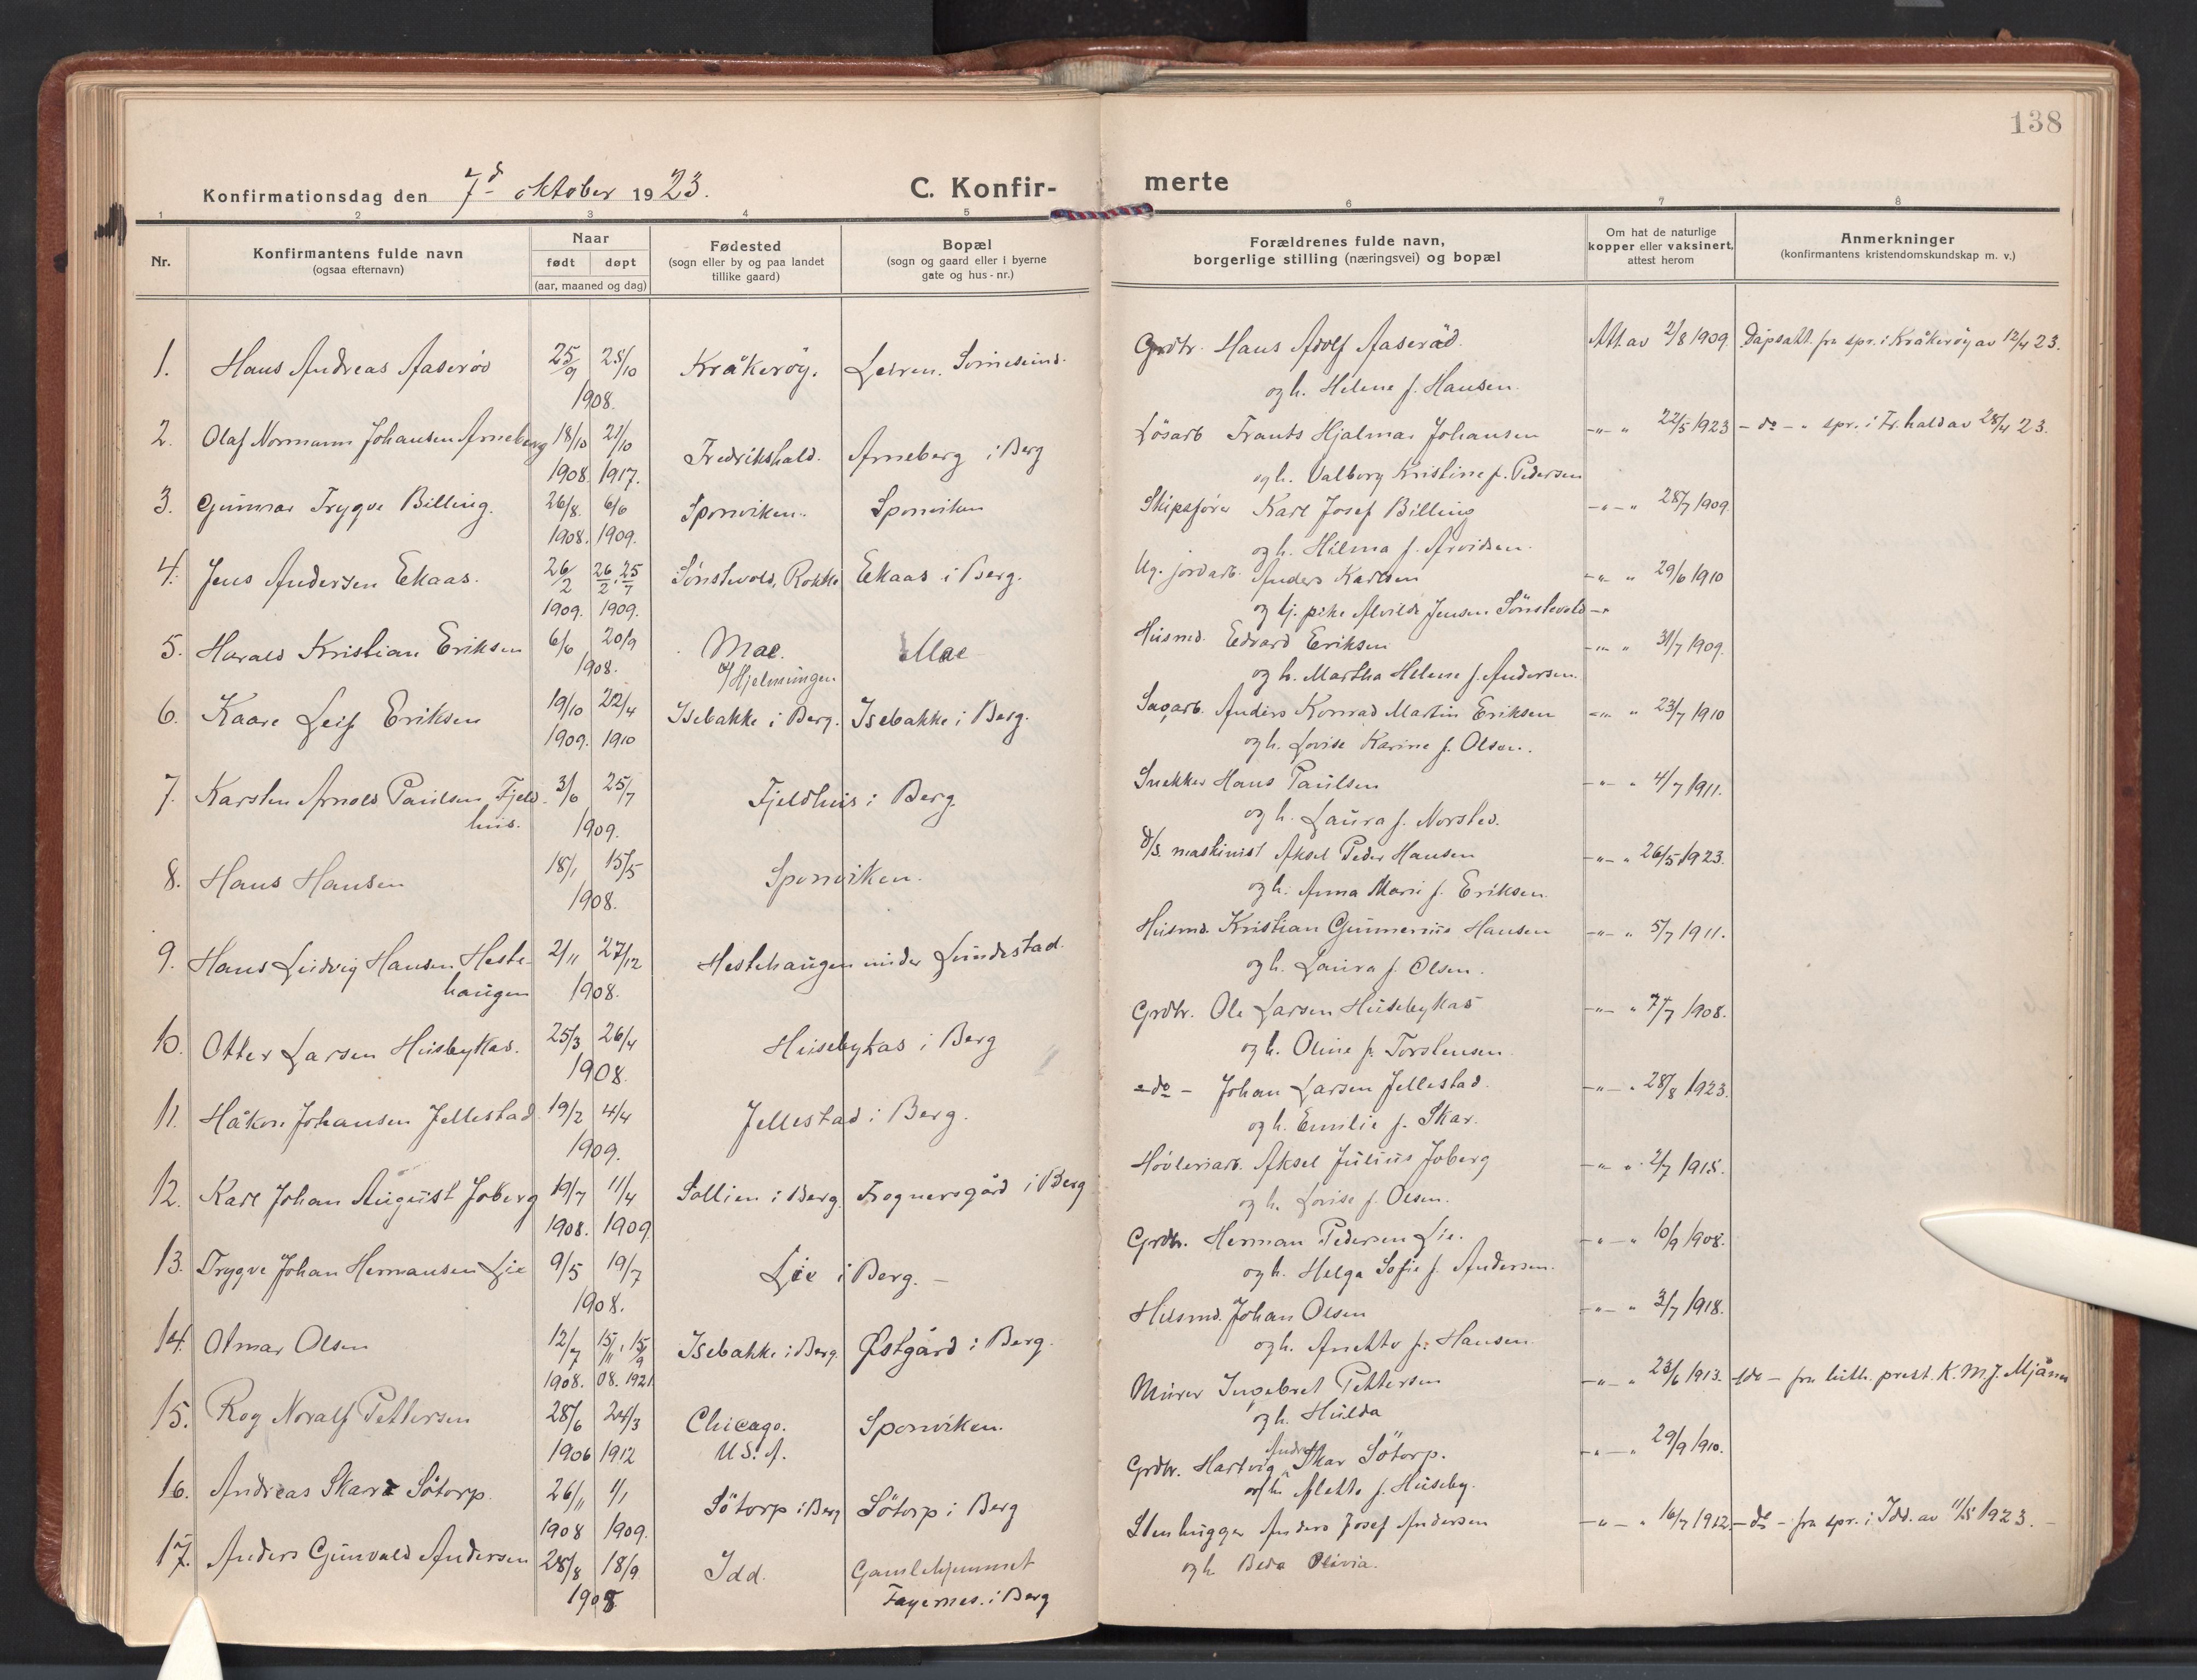 138
Konfirmationsdag den 7d oktober 1923.
C. Konfir-
merte
1 2 3 4 5 6 7 8
Nr.
Konfirmantens fulde navn
(ogsaa efternavn)
Naar
født døpt
(aar, maaned og dag)
Fødested
(sogn eller by og paa landet
tillike gaard)
Bopæl
(sogn og gaard eller i byerne
gate og hus-nr.)
Forældrenes fulde navn,
borgerlige stilling (næringsvei) og bopæl
Om hat de naturlige
kopper eller vaksinert,
attest herom
Anmerkninger
(konfirmantens kristendomskundskap m. v.)
1. Hans Andreas Aaserød 25/9 25/10 Kråkerøy. Leiren. Sornesund. Grdbr. Hans Adolf Aaserød. Att. av 2/8 1909. Dåpsatt. fra spr. i Kråkerøy av 12/4 23.
1908. og h. Helene f. Hansen.
2. Olaf Normann Johansen Arneberg 18/10 21/10 Fredrikshald. Arneberg i Berg Løsarb Frants Hjalmar Johansen -"- " 22/5 1923 - do - " spr. i Fr.hald av 28/4 23.
1908. 1917. og h. Valborg Kristine f. Pedersen
3. Gunnar Trygve Billing. 26/8. 6/6 Sponviken. Sponviken Skipsfører Karl Josef Billing -"- " 28/7 1909.
1908. 1909. og h. Hilma f. Arvidsen.
4. Jens Andersen Ekaas. 26/2 26/2 . 25/7 Sønstevold, Rokke Ekaas i Berg. Ug. jordarb. Anders Karlsen -"- " 29/6 1910
1909. 1909. og tj. pike Alvilde Jensen Sønstevold -"
5. Harald Kristian Eriksen 6/6 20/9 Mae. Mae Husmd. Edvard Eriksen -"- " 31/7 1909.
1908. u/Hjelmungen og h. Martha Helene f. Andersen.
6. Kaare Leif Eriksen 19/10 22/4 Isebakke i Berg. Isebakke i Berg. Sagarb. Anders Konrad Martin Eriksen -"- " 23/7 1910
1909. 1910 og h. Lovise Karine f. Olsen.
7. Karsten Arnold Paulsen Fjeld- 3/6 25/7 Fjeldhus i Berg. Snekker Hans Paulsen -"- " 4/7 1911.
hus. 1909. og h. Laura f. Norsted.
8. Hans Hansen 18/1 15/5 Sponviken. d/s. maskinist Aksel Peder Hansen -"- " 26/5 1923.
1908. og h. Anna Marie f. Eriksen.
9. Hans Ludvig Hansen Heste- 2/11 27/12 Hestehaugen under Lundestad. Husmd. Kristian Gunnerius Hansen -"- " 5/7 1911.
haugen 1908. og h. Laura f. Olsen.
10. Otter Larsen Husbykas. 25/3 26/4 Husebykas i Berg Grdbr. Ole Larsen Husebykas -"- " 7/7 1908.
1908. og h. Oline f. Torstensen.
11. Håkon Johansen Jellestad. 19/2 4/4 Jellestad i Berg. - do - Johan Larsen Jellestad. -"- " 28/8 1923.
1909. og h. Emilie f. Skar.
12. Karl Johan August Joberg 19/7 11/4 Sollien i Berg. Frognersgård i Berg Høvleriarb. Aksel Julius Joberg -"- " 2/7 1915.
1908. 1909. og h. Lovise f. Olsen.
13. Trygve Johan Hermansen Lie 9/5 19/7 Lie i Berg. - Grdbr. Herman Pedersen Lie. -"- " 10/9 1908.
1908. og h. Helga Sofie f. Andersen.
14. Otmar Olsen 12/7 15/11 . 15/9 Isebakke i Berg. Østgård i Berg. Husmd. Johan Olsen -"- " 3/7 1918.
1908. 08. 1921. og h. Anette f. Hansen
15. Roy Noralf Pettersen 28/6 24/3 Chicago. Sponviken. Murer Ingebret Pettersen -"- " 23/6 1913. -do- fra luth. prest. K. M. J. Mjånes
1906 1912 U.S.A. og h. Hulda
16. Andreas Skar Søtorp. 26/11 1/1 Søtorp i Berg Søtorp i Berg Grdbr. Hartvig Andr. Skar Søtorp. -"- " 29/9 1910.
1908 1909. og h. Mette f. Huseby.
17. Anders Gunvald Andersen 28/8 18/9 Idd. Gamlehjemmet Stenhugger Anders Josef Andersen -"- " 16/7 1912. -do- fra spr. i Idd. av 11/5 1923. -
1908 Fayernes. i Berg og h Beda Olivia.